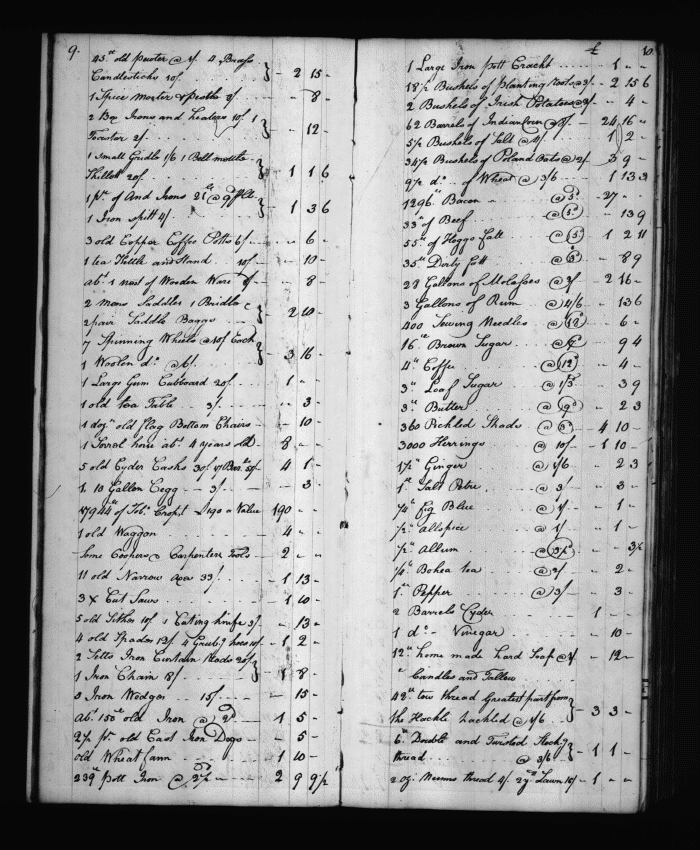 9.
45 lb old pewter @ 1/. 4 Brass
Candlesticks 10/. } " 2 15 -
1 Spice Morter & pestle 8/. - - 8 -
2 Box Irons and heaters 10/ 1
Toaster 2/. } - 12 -
1 Small Gridle 1/6 1 Bell mettle
Skillet 20/. } 1 1 6
1 pr. of And Irons 21 lb @
1 Iron Spitt 4/. } 1 3 6
3 old Copper Coffee Potts 6/. - - 6 -
1 tea Kettle and Stand 10/ - 10 -
abt. 1 nest of Wooden Ware 8/ - - 8
2 Mans Saddles 1 Bridle
2 pair Saddle Baggs } 2 10 -
7 Spinning Wheels @ 10/ Each
1 Woolen do. @ 6/. } 3 16
1 Large Gum Cubboard 20/. 1 -
1 old tea Table 3/. - - 3 -
1 doz. old flag Bottom Chairs - - 10 -
1 Sorrel horse abt. 4 years old 8 -
5 old Cyder Casks 30/ 4 1 -
1. 10 Gallon Cegg 3/. - - 3 -
17944 lb of Tobo. Cropt £190 a Value 190 - -
1 old Waggon 4 " -
Some Coopers & Carpenters Tools 2 " -
11 old Narrow axes 33/. 1 13 -
3 X Cut Saws 1 10 -
5 old Sithes 10/. 1 Cuting knife 3/ - 13 -
4 old Spades 12/. 4 Grubg. hoes 10/ 1 2 -
2 Setts Iron Curtain Rods 20/.
1 Iron Chain 8/ } 1 8 -
3 Iron Wedges 15/. - 15 -
abt. 150 lb old Iron @ 2d 1 5 -
2 1/2 pr. old Cast Iron Dogs - 5 -
old Wheat fann 1 10 -
239 lb Pott Iron @ 2 1/2 2 9 9 1/2
£ 10
1 Large Iron pott Crackt 1 - -
18 1/2 Bushels of Planting Roots @ 3/. 2 15 6
2 Bushels of Irish Potatoes @ 2/. - 4 -
62 Barrels of Indian Corn @ 8/. 24 16 "
5 1/2 Bushels of Salt @ 4/. 1 2 -
34 1/2 Bushels of Poland Oats @ 2/. 3 9 -
9 1/2 do. of Wheat @ 3/6 1 13 3
1296 lb Bacon @ 5d - 27 -
33 lb of Beef @ 5d - 13 9
55 lb of Hoggs fatt @ 5d 1 2 11
35 lb Dirty fatt @ 3d - 8 9
28 Gallons of Molasses @ 2/ 2 16 -
3 Gallons of Rum @ 4/6 - 13 6
400 Sewing Needles @ 18d - 6 -
16 lb Brown Sugar @ 7d - 9 4
4 lb Coffee @ 12d - 4 -
3 lb Loaf Sugar @ 1/3 - 3 9
3 lb Butter @ 9d - 2 3
360 Pickled Shads @ 3d 4 10 -
3000 Herrings @ 10/. 1 10 -
1 1/2 lb Ginger @ 1/6 - 2 3
1 lb Salt Petre @ 3/ - 3 -
1/4 lb fig Blue @ 4/ - 1 -
1/2 lb allspice @ 2/ - 1 -
1/2 lb Allum - - 3 1/2
1/4 lb Bohea tea @ 8/ - 2 -
1 lb Pepper @ 3/ - 3 -
2 Barrels Cyder - 1 -
1 do. - Vinegar - 10 -
12 lb home made hard Soap @ 1/ - 12 -
" Candles and Tallow
42 lb tow thread Greatest part from
the Hackle hackled @ 1/6 } 3 3 -
6 lb Double and Twisted Stockg.
thread @ 3/6 } 1 1 -
2 oz. Nunns thread 4/. 2 yds Lawn 16/ 1 - -